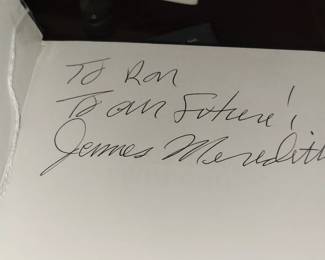 To Ron
To our Future!
James Meredith